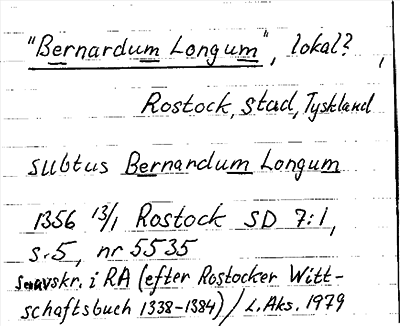 "Bernardum Longum", lokal?,
Rostock, stad, Tyskland
subtus Bernardum Longum
1356 13/1 Rostock SD 7:1,
s. 5, nr 5535
i RA (efter Rostocker Witt-
schaftsbuch 1338-1384) / L. Aks. 1979